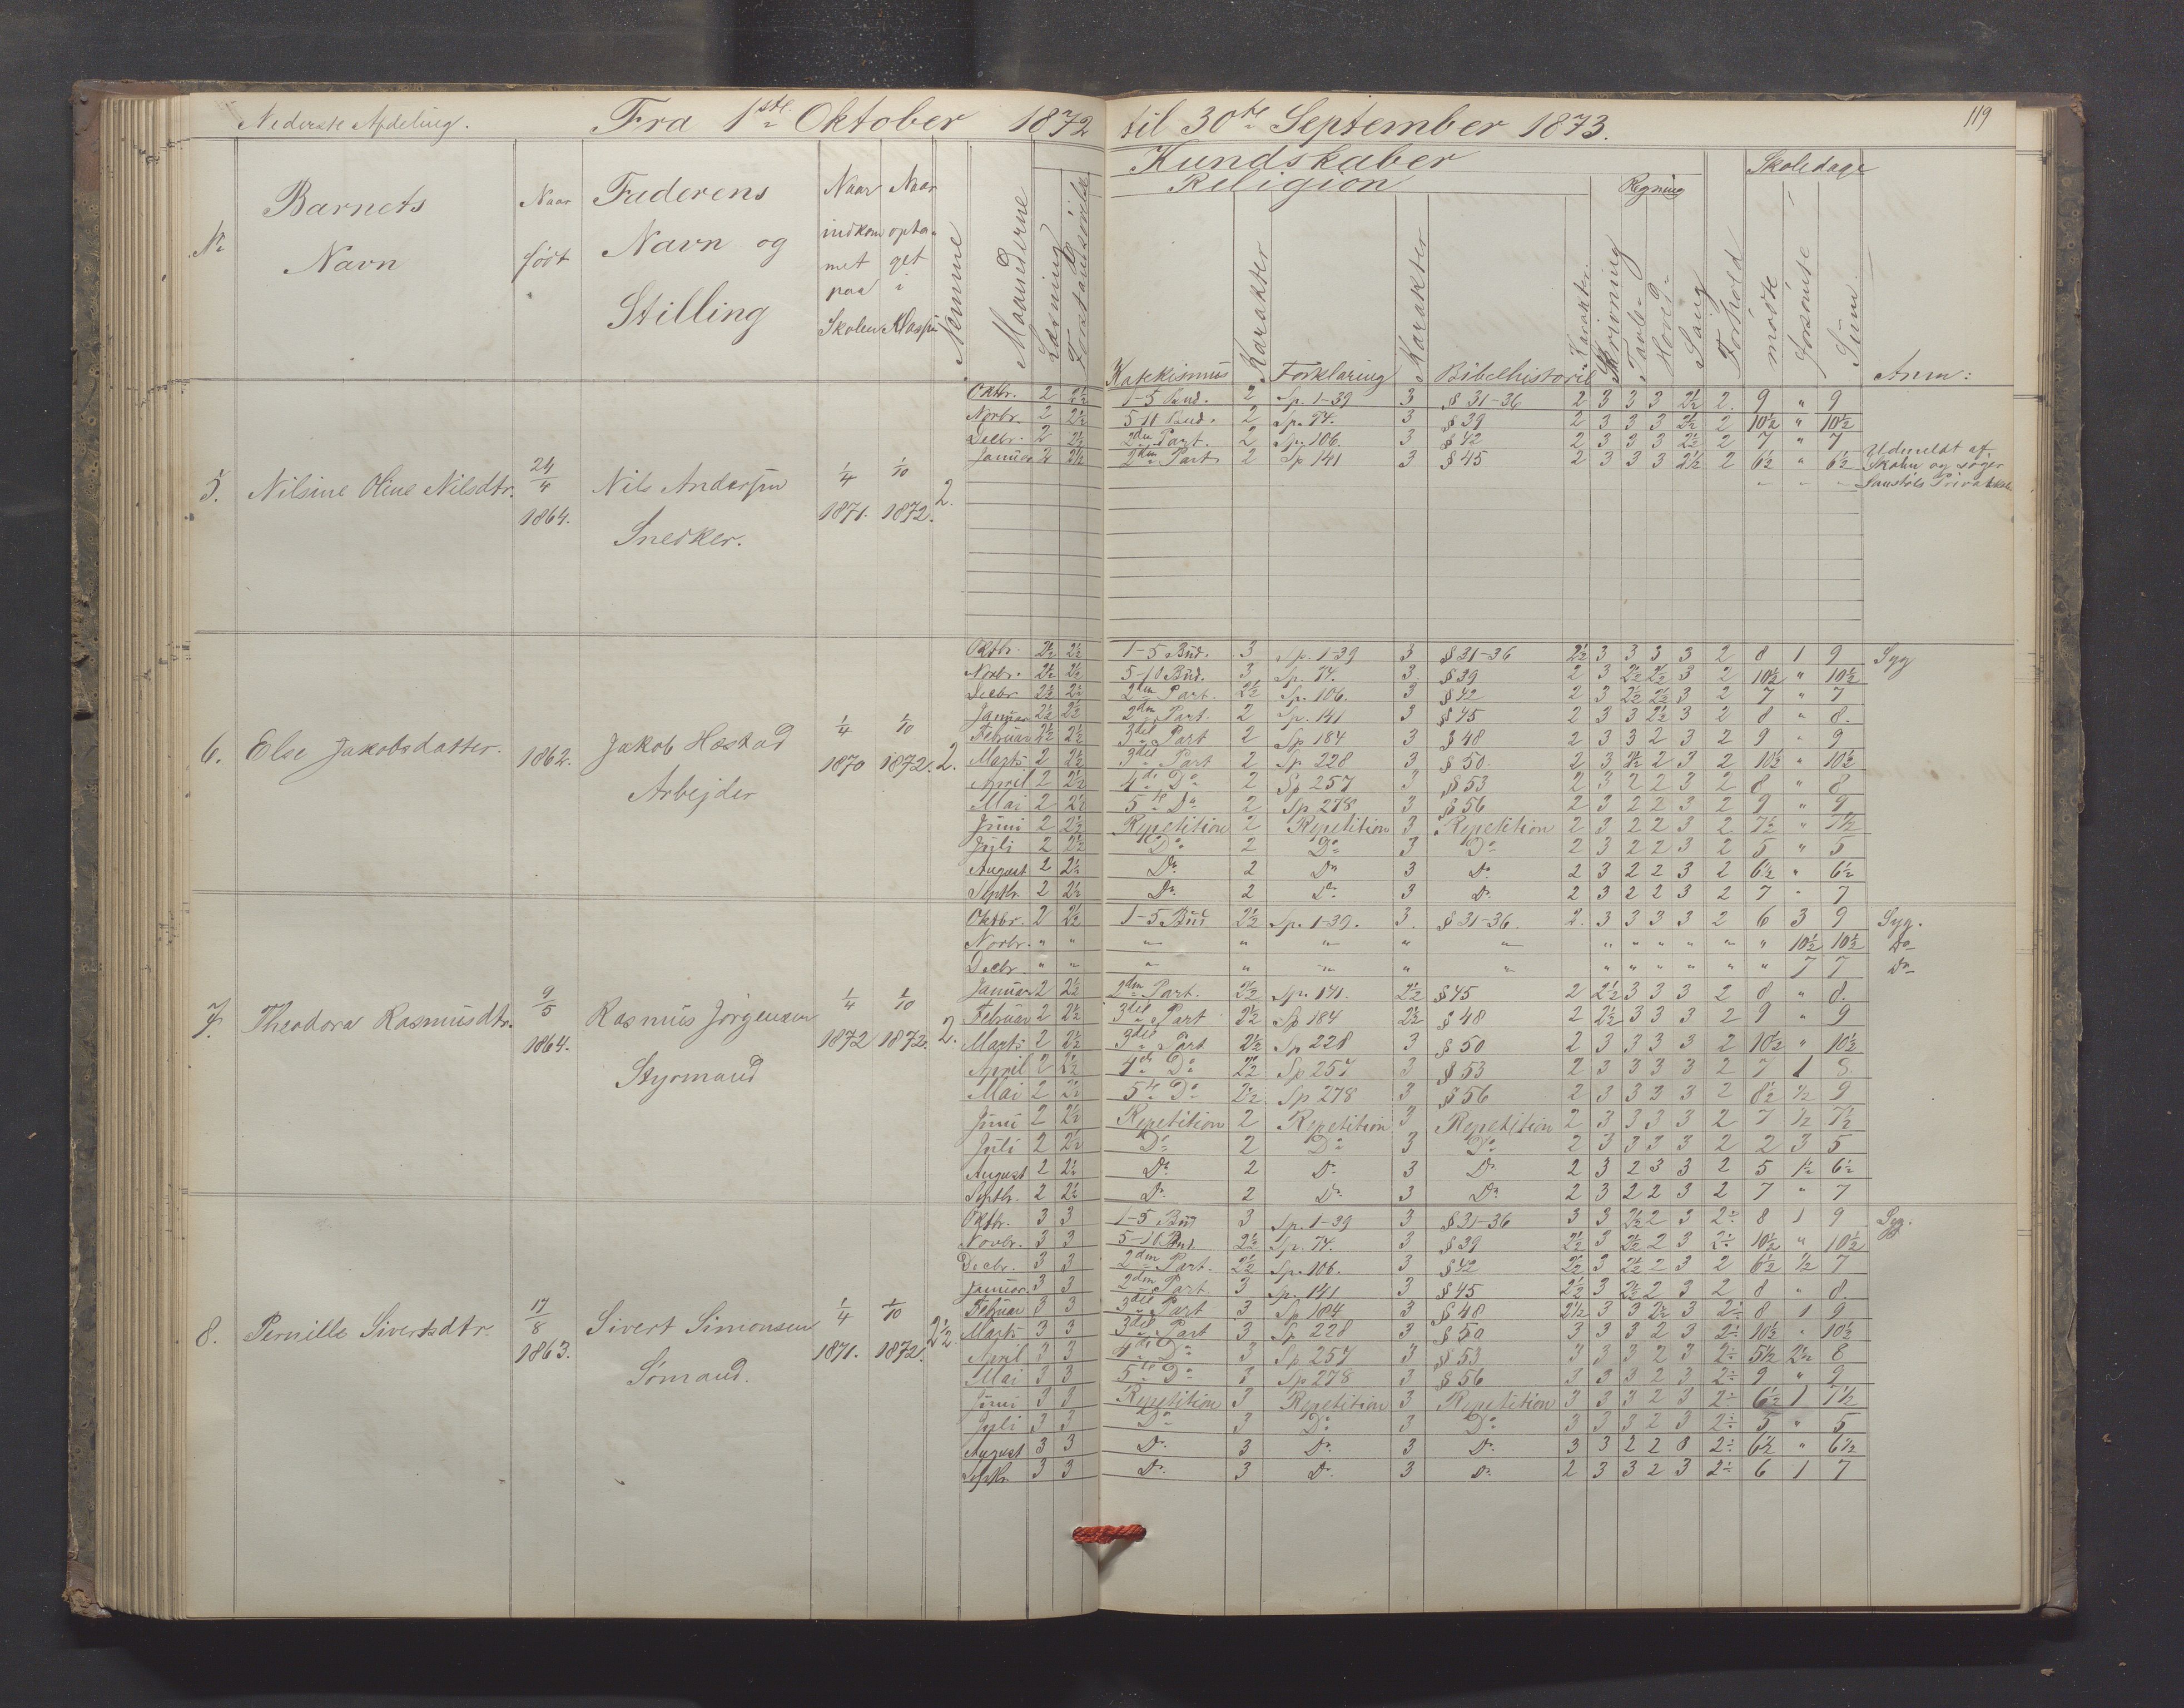 Nederste Afdeling. Fra 1ste Oktober 1872 til 30te September 1873. 119
Kundskaber Skoledage
Religion Regning
No Barnets Navn Naar født Faderens Navn og Stilling Naar indkommet paa Skolen Naar optaget i Klassen Nemme Maanederne Læsning Forstandsøvelse Katekismus Karakter Forklaring Karakter Bibelhistorie Karakter Skrivning Tavle- Hoved- Sang Forhold mødte forsømte Sum Anm:
5. Nilsine Oline Nilsdtr. 24/4 1864. Nils Andersen Snedker. 1/4 1871. 1/10 1872. 2.
Oktbr. 2 2½ 1-5 Bud. 2 Sp. 1-39 3 § 31-36 2 3 3 3 2½ 2. 9 " 9
Novbr. 2 2½ 5-11 Bud. 2 Sp. 74. 3 § 39 2 3 3 3 2½ 2 10½ " 10½
Decbr. 2 2½ 2den Part. 2 Sp. 106. 3 § 42 2 3 3 3 2½ 2 7 " 7
Januar 2 2½ 2den Part 2 Sp 141 3 § 45 2 3 3 3 2½ 2 6½ " 6½ Udmeldt af
Skolen og søger
" " "
6. Else Jakobsdatter. 1862. Jakob Hæstad Arbejder 1/4 1870 1/10 1872. 2.
Oktbr. 2½ 2½ 1-5 Bud. 3 Sp. 1-39 3 § 31-36 2½ 3 3 3 3 2 8 1 9 Syg
Novbr. 2½ 2½ 5-10 Bud. 3 Sp. 74. 3. § 39 2 3 2½ 2½ 3 2 10½ " 10½
Decbr 2½ 2½ 2den Part. 2½ Sp. 106. 3 § 42 2 3 2½ 2½ 3 2 7 " 7
Januar 2½ 2½ 2den Part. 2 Sp. 141 3 § 45 2 3 3 2½ 3 2 8 " 8.
Februar 2½ 2½ 3die Part 2 Sp 184 3 § 48 2 3 3 2 3 2 9 " 9
Marts 2 2½ 3die Part 2 Sp 228 3 § 50. 2 3 2½ 2 3 2 10½ " 10½
April 2 2½ 4de Do 2 Sp 257 3 § 53 2 3 2 2 3 2 8 " 8
Mai 2 2½ 5te Do 2 Sp 278 3 § 56 2 3 2 2 3 2 9 " 9
Juni 2 2½ Repetition 2 Repetition 3 Repetition 2 3 2 2 3 2. 7½ " 7½
Juli 2 2½ Do 2 Do 3 Do 2 3 2 2 3 2 5 " 5
August 2 2½ Do 2 Do 3 Do 2 3 2 2 3 2 6½ " 6½
Septbr. 2 2½ Do 2 Do 3 Do 2 3 2 2 3 2 7 " 7
7. Theodora Rasmusdtr. 9/5 1864. Rasmus Jørgensen Styrmand 1/4 1872 1/10 1872. 2.
Oktbr. 2 2½ 1-5 Bud 2½ Sp. 1-39. 3. § 31-36. 2. 3 3 3 3 2 6 3 9 Syg.
Novbr. " " " " " " " " " " " " " " 10½ 10½ Do
Decbr " " " " " " " " " " " " " " 7 7 Do
Januar 2 2½ 2den Part. 2½ Sp. 141. 2½ § 45 2 2½ 3 3 3 2 8 " 8.
Februar 2 2½ 3die Part 2½ Sp 184 2½ § 48 2 2½ 3 3 3 2 9 " 9
Marts 2 2½ 3die Part 2½ Sp 228 3 § 50 2 3 3 3 3 2 10½ " 10½
April 2 2½ 4de Do 2½ Sp 257 3 § 53 2 3 3 3 3 2 7 1 8.
Mai 2 2½ 5te Do 2½ Sp 278 3 § 56 2 3 3 3 3 2 8½ ½ 9
Juni 2 2½ Repetition 2 Repetition 3 Repetition 2 3 3 3 3 2 7 ½ 7½
Juli 2 2½ Do 2 Do 3 Do 2 3 3 3 3 2 2 3 5
August 2 2½ Do 2 Do 3 Do 2 3 2 3 3 2 5 1½ 6½
Septbr. 2 2½ Do 2 Do 3 Do 2 3 2 2 3 2 7 " 7
8. Pernille Sivertsdtr. 17/8 1863. Sivert Simonsen Sømand. 1/4 1871. 1/10 1872. 2½.
Oktbr. 3 3 1-5 Bud 3 Sp. 1-39 3 § 31-36 3 3 2½ 2 3 2÷ 8 1 9 Syg.
Novbr. 3 3 5-10 Bud. 2½ Sp. 74. 3 § 39 2½ 3 2½ 2 3 2÷ 10½ " 10½
Decbr. 3 3 2den Part. 2½ Sp. 106. 3 § 42 2½ 3 2½ 2 3 2 6½ ½ 7
Januar 3 3 2den Part. 3 Sp. 141 3 § 45 2½ 3 2½ 2 3 2 8 " 8.
Februar 3 3 3die Part 3 Sp 184 3 § 48 2½ 3 3 2½ 3 2÷ 8 1 9
Marts 3 3 3die Part 3 Sp 228 3 § 50 3 3 3 2 3 2÷ 10½ " 10½
April 3 3 4de Do 3 Sp 257 3 § 53 3 3 3 2 3 2÷ 5½ 2½ 8
Mai 3 3 5te Do 3 Sp 278 3 § 56 3 3 3 2 3 2÷ 9 " 9
Juni 3 3 Repetition 3 Repetition 3 Repetition 3 3 3 2 3 2÷ 6½ 1 7½
Juli 3 3 Do 3 Do 3 Do 3 3 3 2 3 2÷ 5 " 5
August 3 3 Do 3 Do 3 Do 3 3 2 2 3 2÷ 6½ " 6½
Septbr. 3 3 Do 3 Do 3 Do 2 3 3 2 3 2÷ 6 1 7